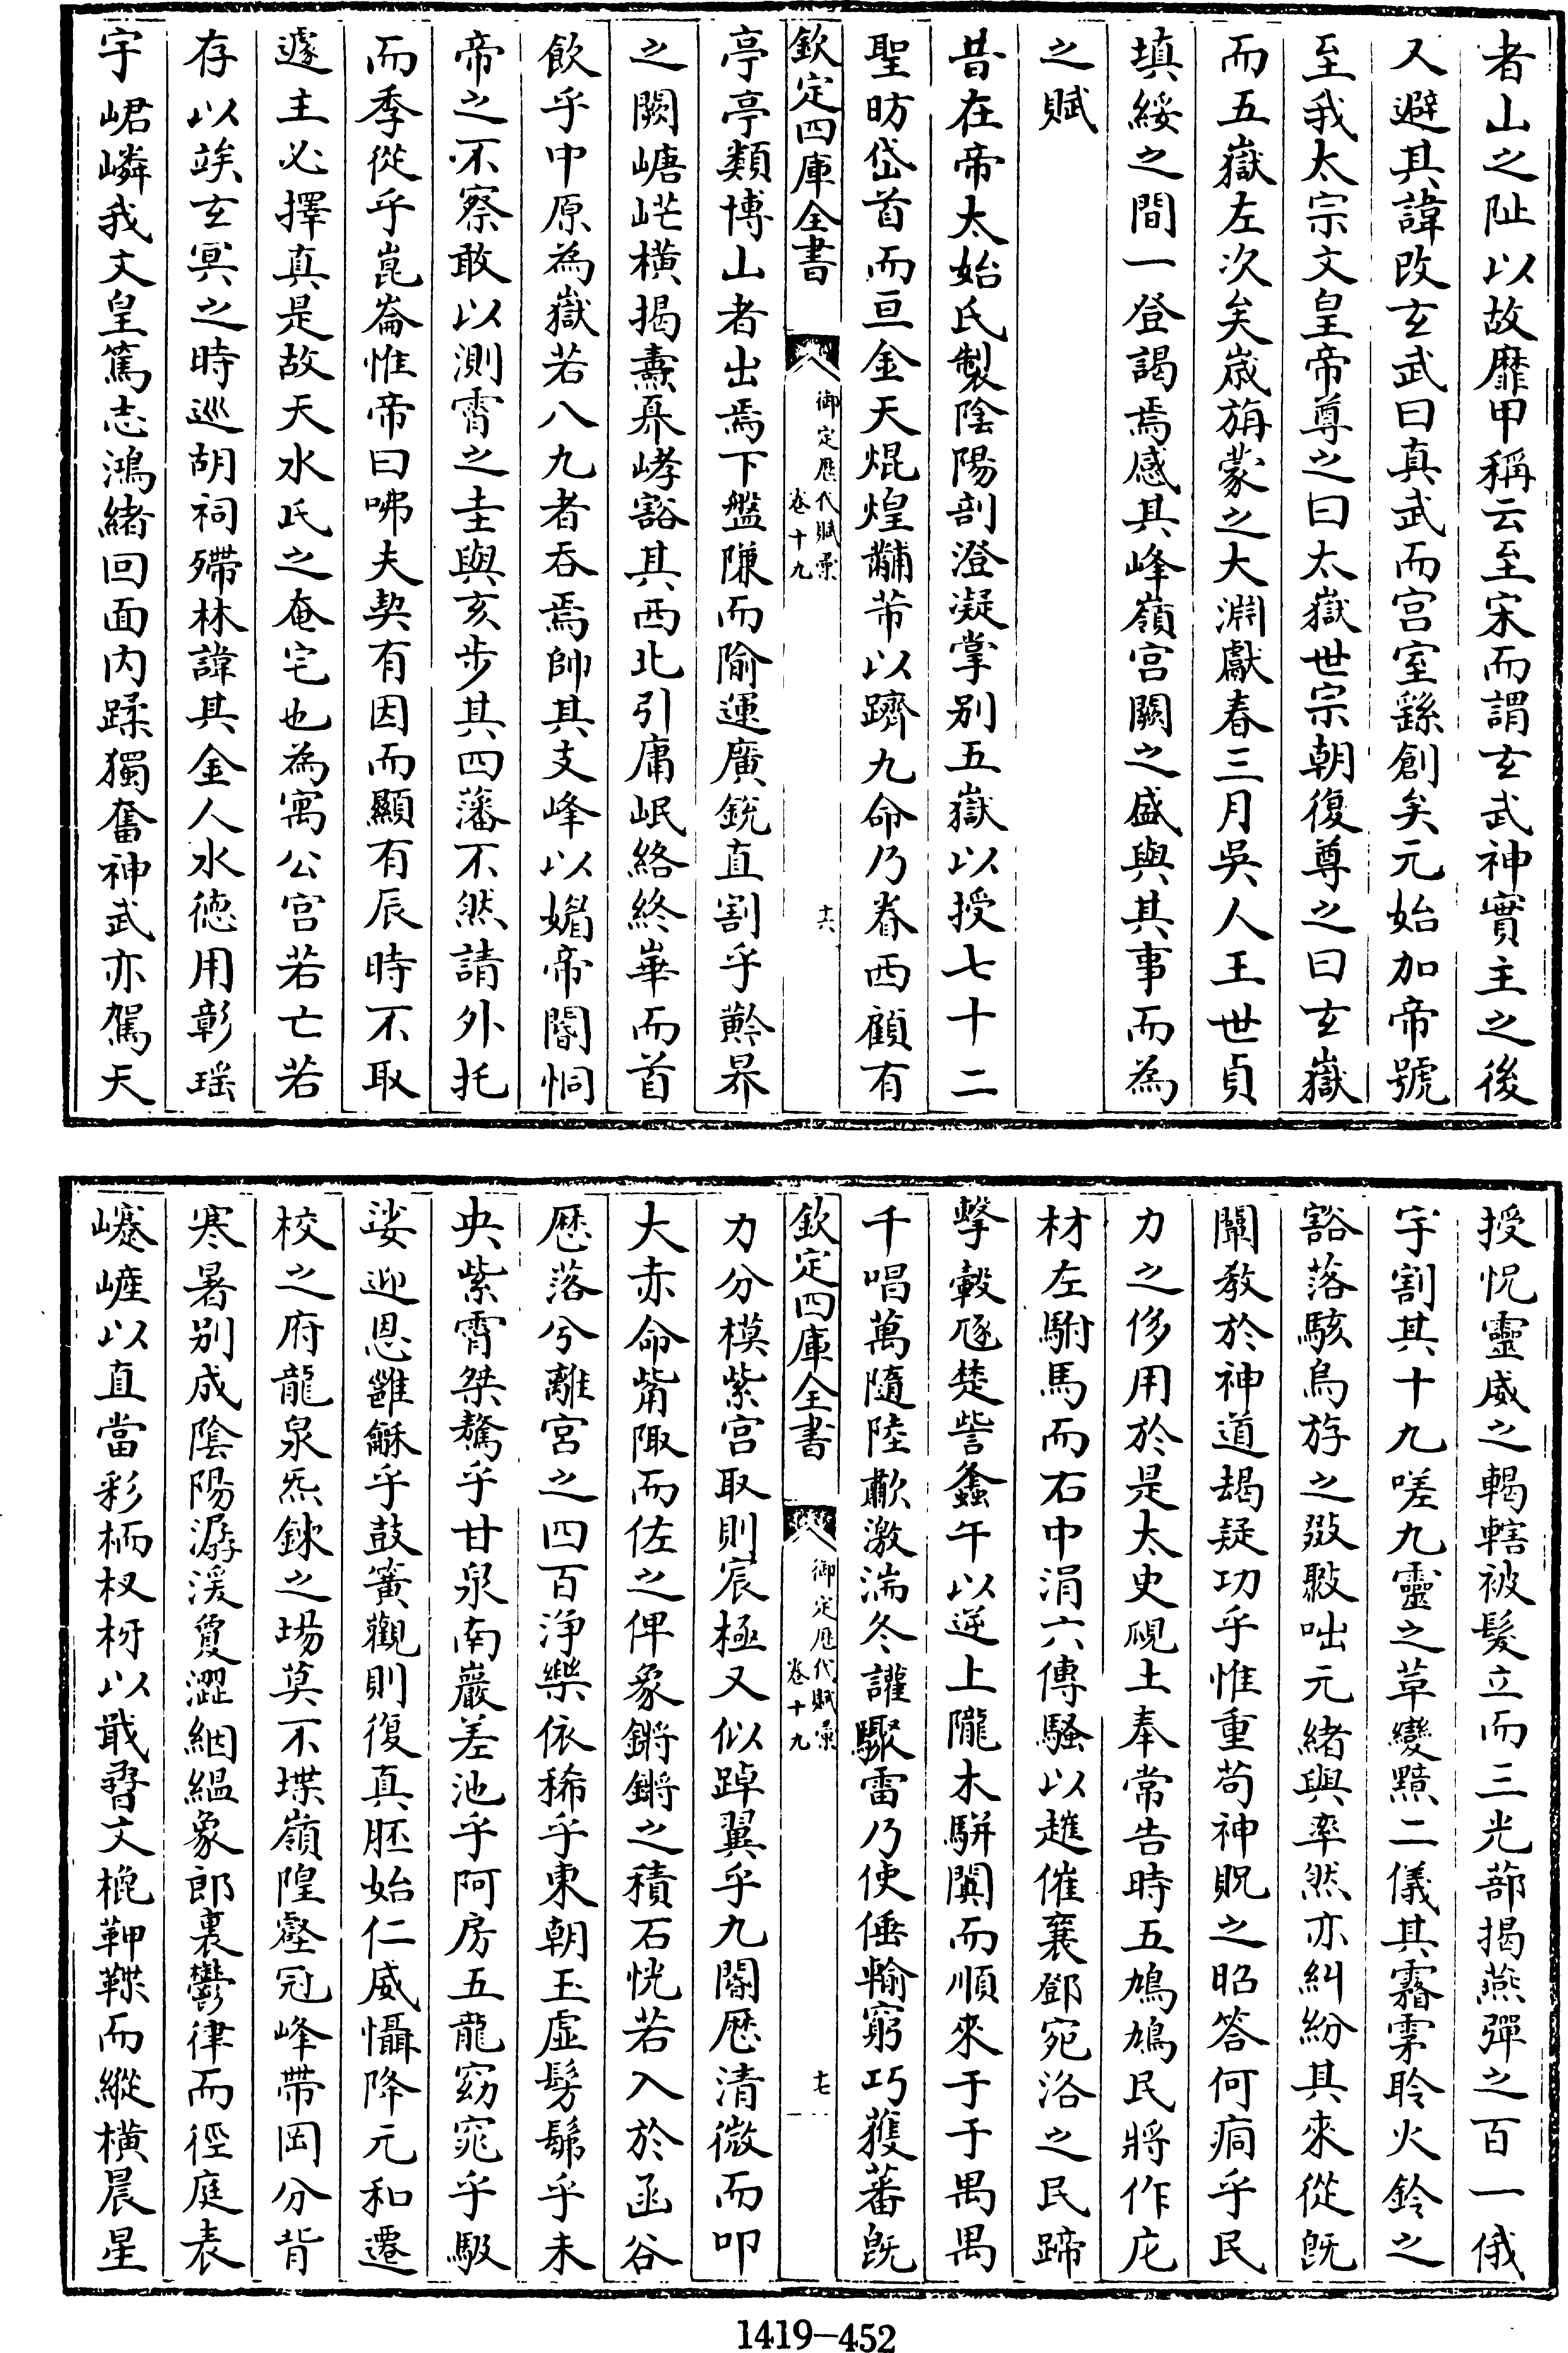 者山之阯以故靡甲稱云至宋而謂玄武神實主之後
人避其諱改玄武曰真武而宫室繇創矣元始加帝號
至我太宗文皇帝尊之曰太嶽世宗朝復尊之曰玄嶽
而五嶽左次矣歲旃蒙之大淵獻春三月吳人王世貞
填綏之間一登謁焉感其峰嶺宫闕之盛與其事而為
之賦
昔在帝太始氏製陰陽剖澄凝掌别五嶽以授七十二
聖昉岱首而亘金天焜煌黼芾以躋九命乃眷西顧有
欽定四庫全書
御定歷代賦彙
卷十九
十六
亭亭類博山者出焉下盤隒而隃運廣銳直割乎黅界
之闕嵣㟐橫揭燾奡嵉豁其西北引庸岷絡終崋而首
飲乎中原為嶽若八九者吞焉帥其支峰以媚帝閽恫
帝之不察敢以測霄之圭與亥步其四藩不然請外托
而季從乎崑崙惟帝曰咈夫契有因而顯有辰時不取
遽主必擇真是故天水氏之奄宅也為寓公宫若亡若
存以竢玄冥之時巡胡祠殢林諱其金人水德用彰瑶
宇峮嶙我文皇篤志鴻緒回面内蹂獨奮神武亦駕天
授怳靈威之轕轄被髮立而三光蔀揭燕彈之百一俄
宇割其十九嗟九靈之草變黷二儀其霿雺聆火鈴之
豁落駭烏斿之㪚駇咄元緒與率然亦糾紛其來從旣
闡教於神道朅疑功乎惟重苟神貺之昭答何痌乎民
力之侈用於是太史硯土奉常告時五鳩鳩民將作庀
材左駙馬而右中涓六傳騷以趡催襄鄧宛洛之民蹄
擊轂㢠楚訾螽午以逆上隴木駢闐而順來于于禺禺
千唱萬隨陸歗激湍冬讙驟雷乃使倕輸窮巧蒦蕃旣
欽定四庫全書
御定歷代賦彙
卷十九
十七
力分模紫宫取則宸極又似踔翼乎九閽厯清微而叩
大赤命觜陬而佐之俾象鏘鏘之積石恍若入於函谷
厯落兮離宫之四百淨樂依稀乎東朝玉虛髣髴乎未
央紫霄桀驁乎甘泉南巖差池乎阿房五龍窈窕乎馺
娑迎恩雝龢乎鼓簧觀則復真胚始仁威懾降元和遷
校之府龍泉炁鍊之場莫不堞嶺隍壑冠峰帶岡分背
寒暑别成陰陽潺湲夐澀絪緼象郎裏鬱律而徑庭表
㠑嵼以直當彩栭杈枒以戢孴文棍鞞鞢而縱横晨星
1419-452